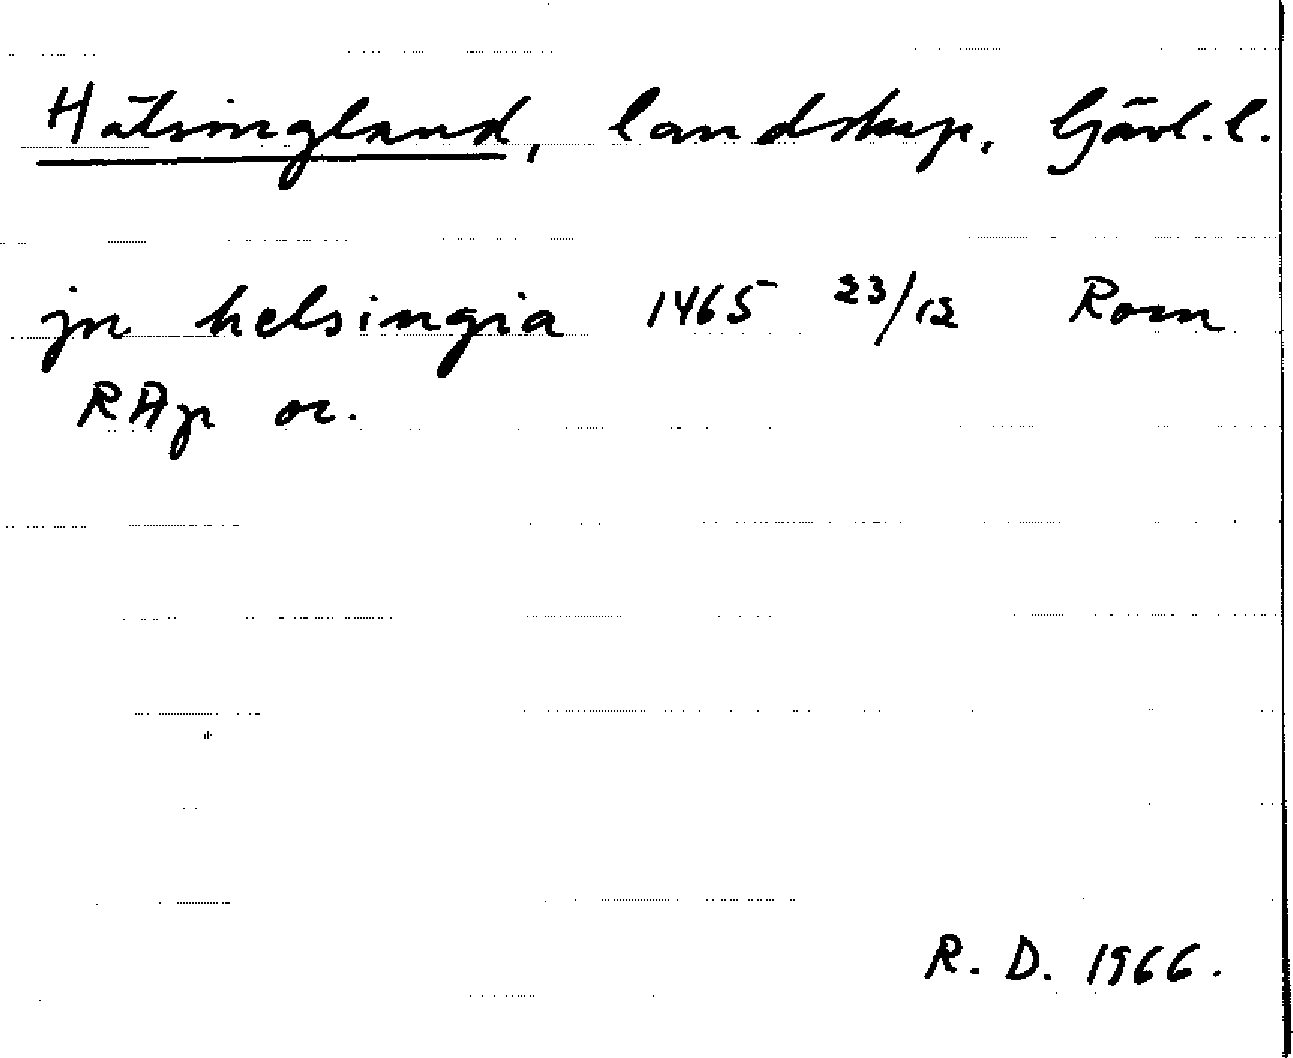 Hälsingland, landskap. Gävl. l.
jn helsingia 1465 23/12 Rom
RAp or.
R. D. 1966.